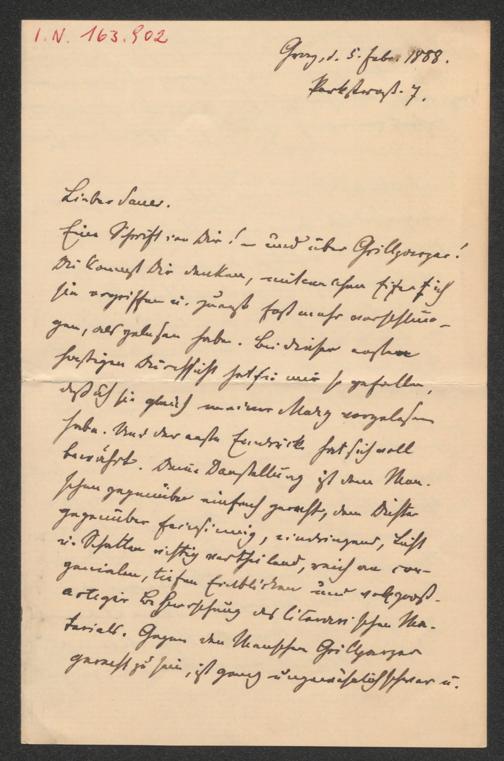 I. N. 163.902
Graz, d. 5. Febr. 1888.
Parkstraß. 7.
Lieber Sauer.
Eine Schrift von Dir! – und über Grillparzer!
Du kannst Dir denken, mit welchem Eifer ich
sie ergriffen u. zuerst fast mehr verschlun-
gen, als gelesen habe. Bei dieser ersten
hastigen Durchsicht hat sie mir so gefallen,
daß ich sie gleich meiner Mary vorgelesen
habe. Und der erste Eindruck hat sich voll
bewährt. Deine Darstellung ist dem Men-
schen gegenüber einfach gerecht, dem Dichter
gegenüber feinsinnig, eindringend, Licht
u. Schatten richtig vertheilend, reich an con-
genialen, tiefen Einblicken und von groß-
artiger Beherrschung des literarischen Ma-
terials. Gegen den Menschen Grillparzer
gerecht zu sein, ist ganz ungewöhnlich schwer u.